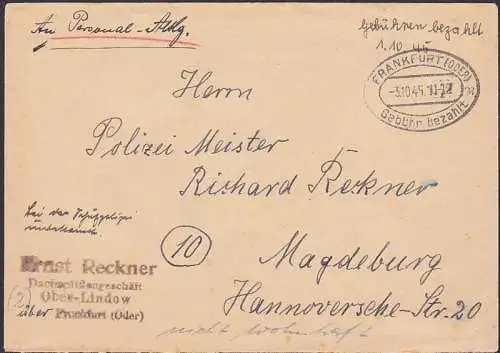 An Personal-Abtlg.
Gebühren bezahlt
1.10.45
FRANKFURT (ODER)
-3.10.45. 11-12
Gebühr bezahlt
Herrn
Polizei Meister
Richard Reckner
bei der Schutzpolizei
10
Magdeburg
Hannoversche-Str. 20
Ernst Reckner
Dachpappengeschäft
Ober-Lindow
2
über Frankfurt (Oder)
nicht wohnhaft